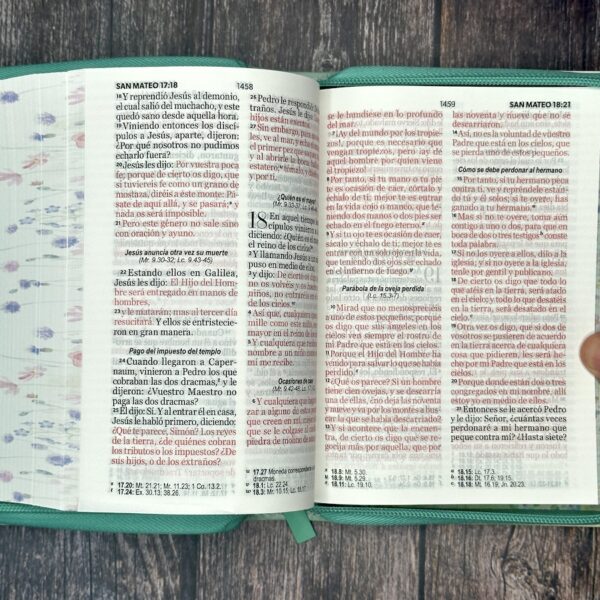 SAN MATEO 17:18
1458
18 Y reprendió Jesús al demonio,
el cual salió del muchacho, y este
quedó sano desde aquella hora.
19 Viniendo entonces los discí-
pulos a Jesús, aparte, dijeron:
¿Por qué nosotros no pudimos
echarlo fuera?
20 Jesús les dijo: Por vuestra poca
fe; porque de cierto os digo, que
si tuviereis fe como un grano de
mostaza, diréis a este monte: Pá-
sate de aquí allá, y se pasará;
nada os será imposible.
21 Pero este género no sale sino
con oración y ayuno.
Jesús anuncia otra vez su muerte
(Mr. 9.30-32; Lc. 9.43-45)
22 Estando ellos en Galilea,
Jesús les dijo: El Hijo del Hom-
bre será entregado en manos de
hombres,
23 y le matarán; mas al tercer día
resucitará. Y ellos se entristecie-
ron en gran manera.
Pago del impuesto del templo
24 Cuando llegaron a Caper-
naum, vinieron a Pedro los que
cobraban las dos dracmas, y le
dijeron: ¿Vuestro Maestro no
paga las dos dracmas?
25 Él dijo: Sí. Y al entrar él en casa,
Jesús le habló primero, diciendo:
¿Qué te parece, Simón? Los reyes
de la tierra, ¿de quiénes cobran
los tributos o los impuestos? ¿De
sus hijos, o de los extraños?
17.20: Mt. 21.21; Mr. 11.23; 1 Co. 13.2.
17.24: Ex. 30.13; 38.26.
26 Pedro le respondió:
traños. Jesús le dijo:
hijos están exentos.
27 Sin embargo, para
ve al mar, y echa
el primer pez que
y al abrirle la boca
estatero; tómalo, y
y por ti.
¿Quién es el mayor?
(Mr. 9.33-37; Lc.
18 En aquel tiempo
cípulos vinieron
diciendo: ¿Quién es el
el reino de los cielos?
2 Y llamando Jesús a un
puso en medio de
3 y dijo: De cierto os
no os volvéis y os
niños, no entraréis en
de los cielos.
4 Así que, cualquiera
mille como este niño
mayor en el reino de
5 Y cualquiera que
nombre a un niño
me recibe.
Ocasiones de caer
(Mr. 9.42-48; Lc. 17.1-2)
6 Y cualquiera que
zar a alguno de estos
que creen en mí,
que se le colgase al
piedra de molino de
17.27 Moneda correspondiente
dracmas.
18.1: Lc. 22.24.
18.3: Mr. 10.15; Lc.
1459
SAN MATEO 18:21
se le hundiese en lo profundo
del mar.
7 ¡Ay del mundo por los tropie-
zos! porque es necesario que
vengan tropiezos, pero ¡ay de
aquel hombre por quien viene
el tropiezo!
8 Por tanto, si tu mano o tu pie
te es ocasión de caer, córtalo y
échalo de ti; mejor te es entrar
en la vida cojo o manco, que te-
niendo dos manos o dos pies ser
echado en el fuego eterno.
9 Y si tu ojo te es ocasión de caer,
sácalo y échalo de ti; mejor te es
entrar con un solo ojo en la vida,
que teniendo dos ojos ser echado
en el infierno de fuego.
Parábola de la oveja perdida
(Lc. 15.3-7)
10 Mirad que no menospreciéis
a uno de estos pequeños; porque
os digo que sus ángeles en los
cielos ven siempre el rostro de
mi Padre que está en los cielos.
11 Porque el Hijo del Hombre ha
venido para salvar lo que se había
perdido.
12 ¿Qué os parece? Si un hombre
tiene cien ovejas, y se descarría
una de ellas, ¿no deja las noventa
y nueve y va por los montes a bus-
car la que se había descarriado?
13 Y si acontece que la encuen-
tra, de cierto os digo que se re-
gocija más por aquella, que por
18.8: Mt. 5.30.
18.9: Mt. 5.29.
18.11: Lc. 19.10.
las noventa y nueve que no se
descarriaron.
14 Así, no es la voluntad de vuestro
Padre que está en los cielos, que
se pierda uno de estos pequeños.
Cómo se debe perdonar al hermano
15 Por tanto, si tu hermano peca
contra ti, ve y repréndele estando
tú y él solos; si te oyere, has
ganado a tu hermano.
16 Mas si no te oyere, toma aún
contigo a uno o dos, para que en
boca de dos o tres testigos conste
toda palabra.
17 Si no los oyere a ellos, dilo a la
iglesia; y si no oyere a la iglesia,
tenle por gentil y publicano.
18 De cierto os digo que todo lo
que atéis en la tierra, será atado
en el cielo; y todo lo que desatéis
en la tierra, será desatado en el
cielo.
19 Otra vez os digo, que si dos de
vosotros se pusieren de acuerdo
en la tierra acerca de cualquiera
cosa que pidieren, les será he-
cho por mi Padre que está en los
cielos.
20 Porque donde están dos o tres
congregados en mi nombre, allí
estoy yo en medio de ellos.
21 Entonces se le acercó Pedro
y le dijo: Señor, ¿cuántas veces
perdonaré a mi hermano que
peque contra mí? ¿Hasta siete?
18.15: Lc. 17.3.
18.16: Dt. 17.6; 19.15.
18.18: Mt. 16.19; Jn. 20.23.